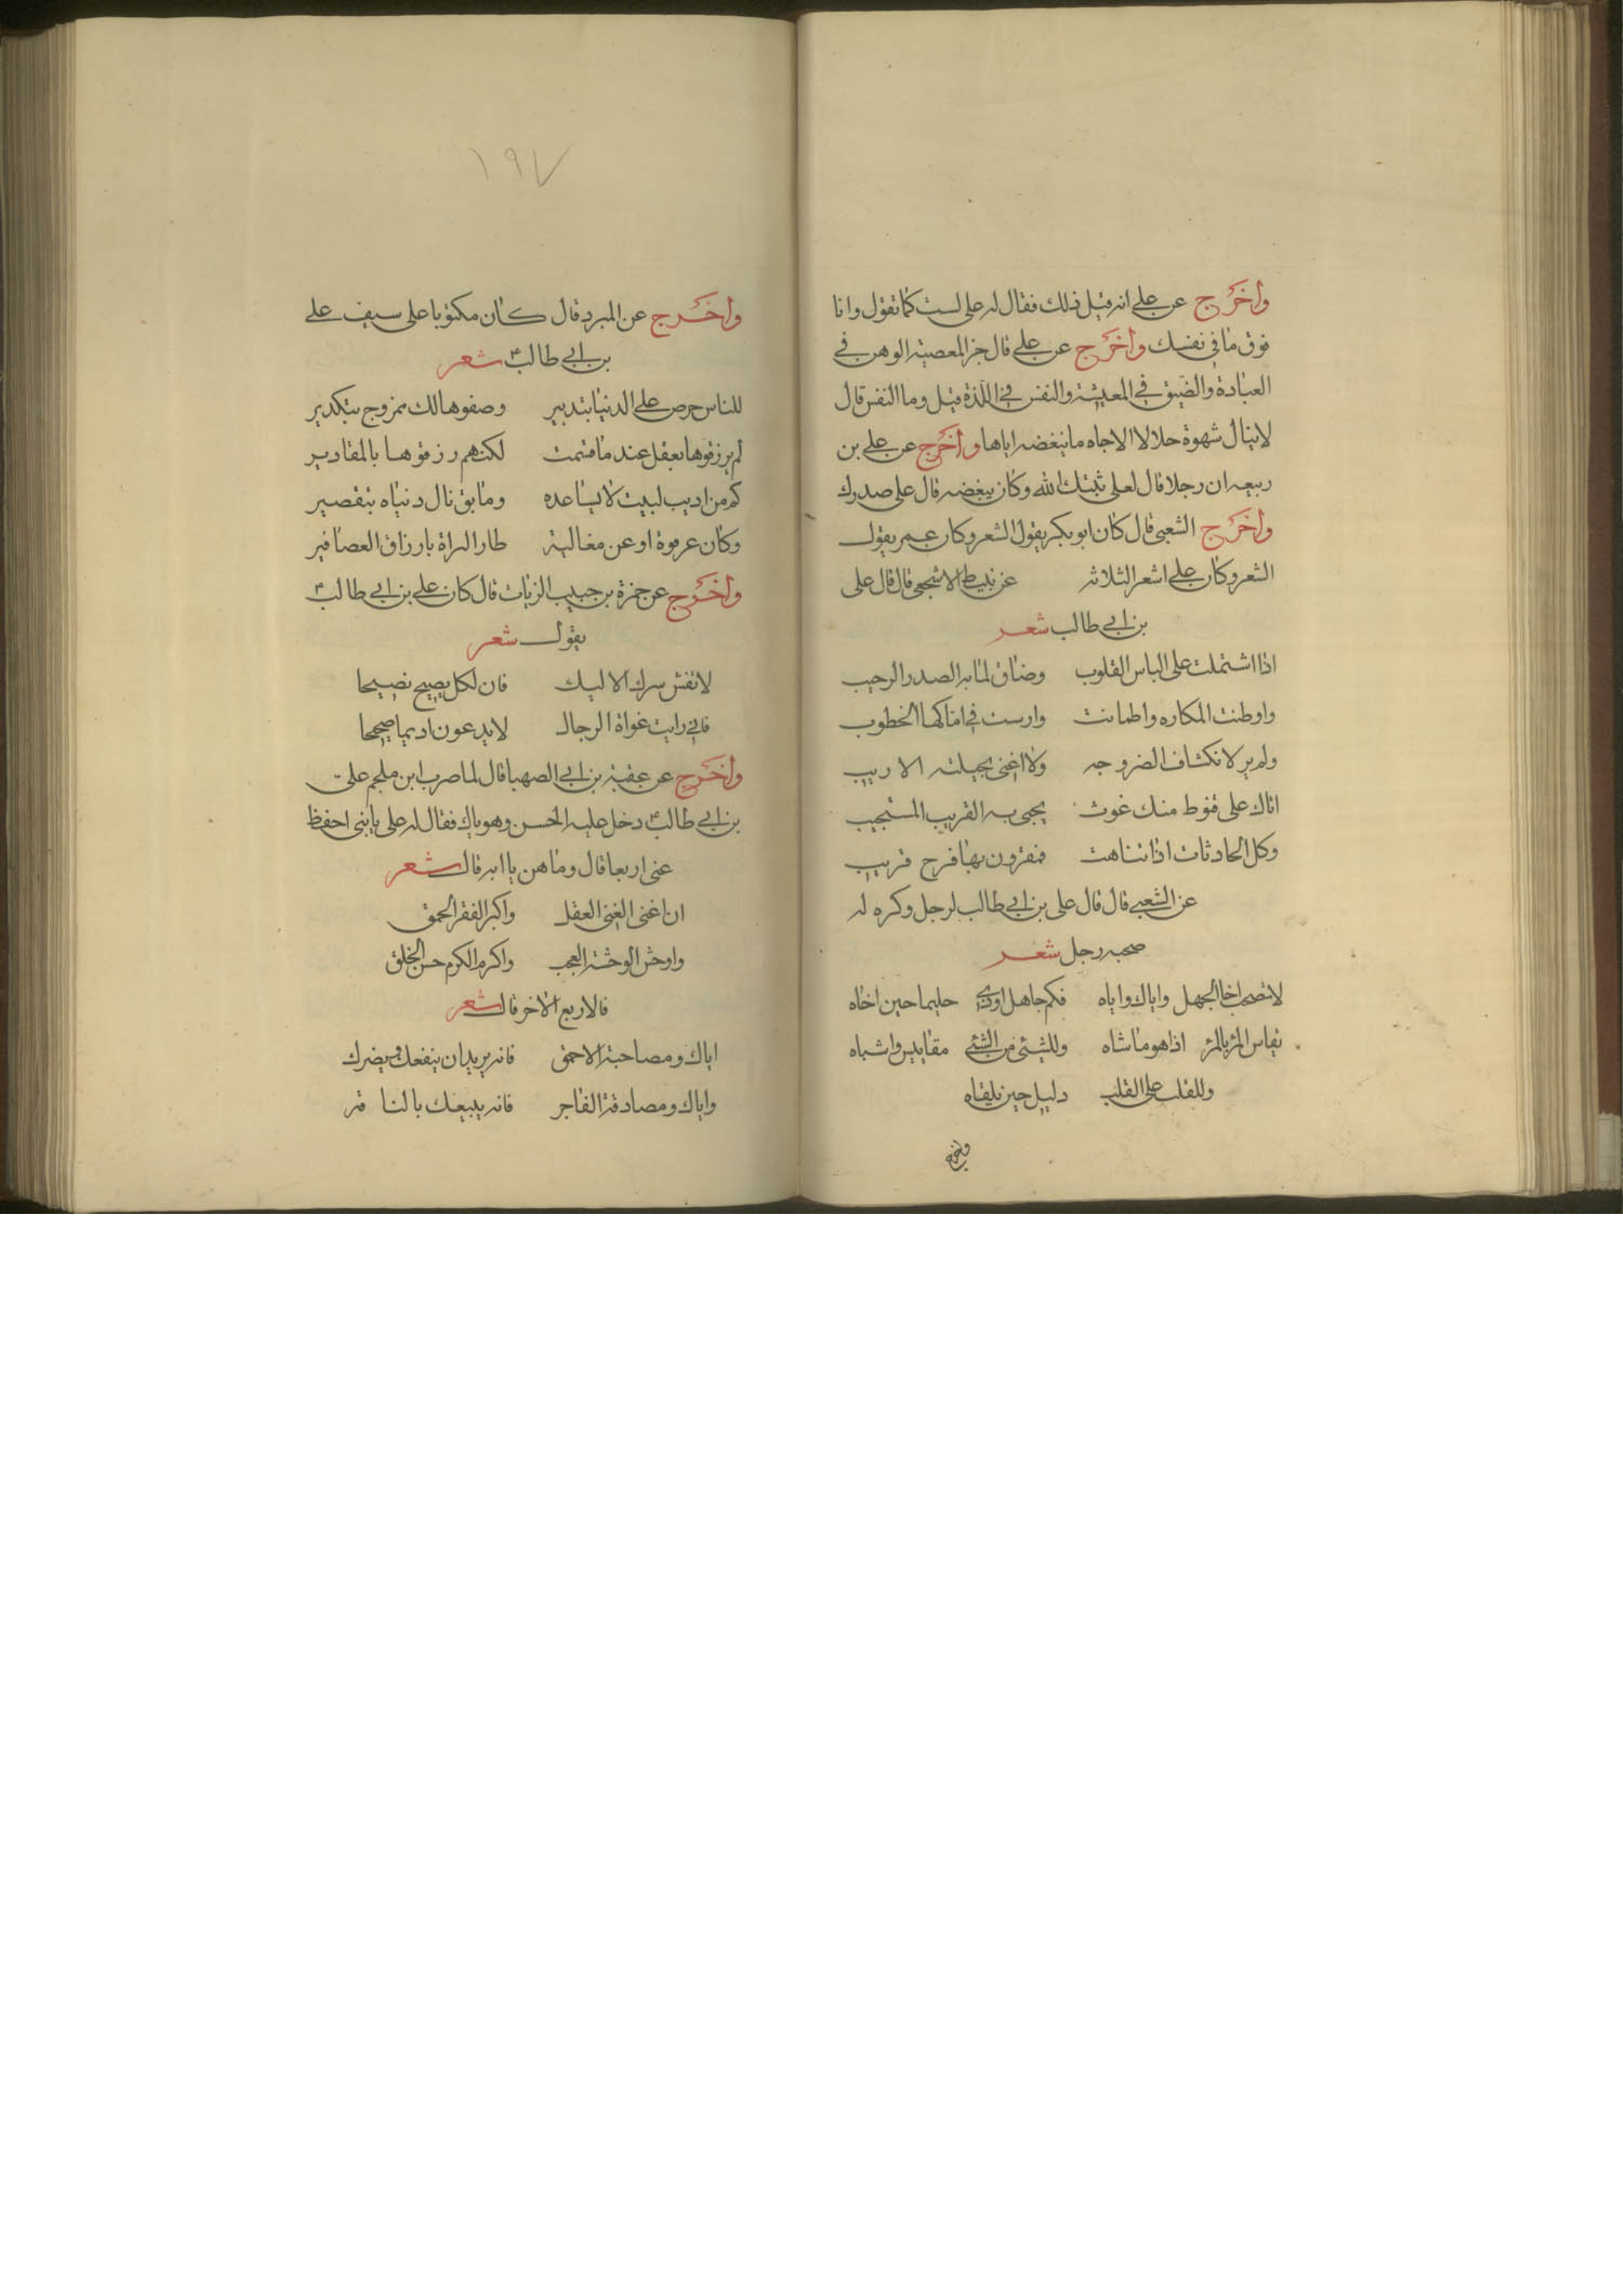 وأخرج عن علي انه قيل ذلك فقال له على لست كما تقول وانا
فوق ما في نفسك وأخرج عن علي قال جزا المعصية الوهن في
العبادة والضيق في المعيشة والنفس في اللذة قيل وما النفس قال
لا ينال شهوة حلالا الا جاه ما ينغصه اياها وأخرج عن علي بن
ربيعه ان رجلا قال لعلى ثبتك الله وكان يبغضه قال على صدرك
وأخرج الشعبى قال كان ابو بكر يقول الشعر وكان عمر يقول
الشعر وكان علي اشعر الثلاثه عن نبيط الاشجعى قال قال على
بن ابي طالب شعر
اذا اشتملت على الياس القلوب وضاق لما به الصدر الرحيب
واوطنت المكاره واطمانت وارست في اماكنها الخطوب
ولم ير لانكشاف الضر وجه ولا اغنى بحيلته الاريب
اتاك على قنوط منك غوث يجى به القريب المستجيب
وكل الحادثات اذا تناهت فمقرون بها فرج قريب
عن الشعبي قال قال على بن ابي طالب لرجل وكره له
صحبه رجل شعر
لا تصحب اخا الجهل واياك واياه فكم جاهل اودى حليما حين اخاه
يقاس المرء بالمرء اذا هو ما شاه وللشئ من الشئ مقاييس واشباه
وللقلب على القلب دليل حين يلقاه
وأخرج
١٩٧
وأخرج عن المبرد قال كان مكتوبا على سيف علي
بن ابي طالب شعر
للناس حرص على الدنيا بتدبير وصفوها لك ممزوج بتكدير
لم يرزقوها بعقل عند ما قسمت لكنهم رزقوها بالمقادير
كم من اديب لبيب لا يساعده ومابق نال دنياه بتقصير
وكان عن قوة او عن مغالبة طار البزاة بارزاق العصافير
وأخرج عن حمزة بن حبيب الزيات قال كان علي بن ابي طالب
يقول شعر
لا تفش سرك الا اليك فان لكل نصيح نصيحا
فاني رايت غواة الرجال لا يدعون اديما صحيحا
وأخرج عن عقبة بن ابي الصهبا قال لما ضرب ابن ملجم على
بن ابي طالب دخل عليه الحسن وهو باك فقال له على يا بنى احفظ
عنى اربعا قال وما هن يا ابه قال شعر
ان اغنى الغنى العقل واكبر الفقر الحمق
واوحش الوحشة العجب واكرم الكرم حسن الخلق
فالاربع الاخر قال شعر
اياك ومصاحبة الاحمق فانه يريد ان ينفعك فيضرك
واياك ومصادقة الفاجر فانه يبيعك بالتافه